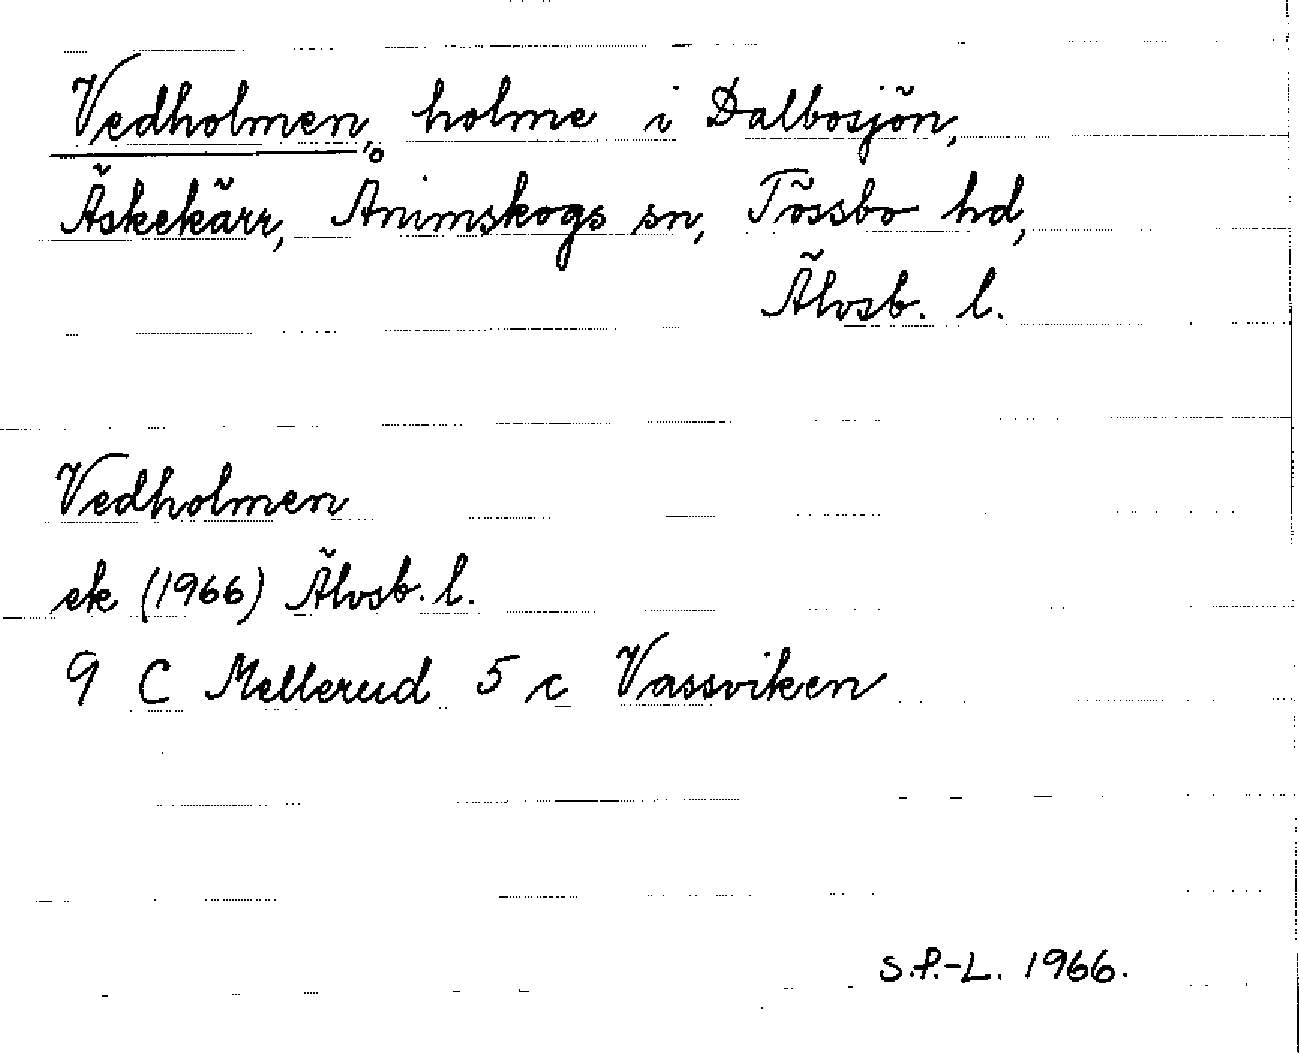 Vedholmen, holme i Dalbosjön,
Äskekärr, Ånimskogs sn, Tössbo hd,
Älvsb. l.
Vedholmen
ek (1966) Älvsb. l.
9 C Mellerud 5 c Vassviken
S.P.-L. 1966.